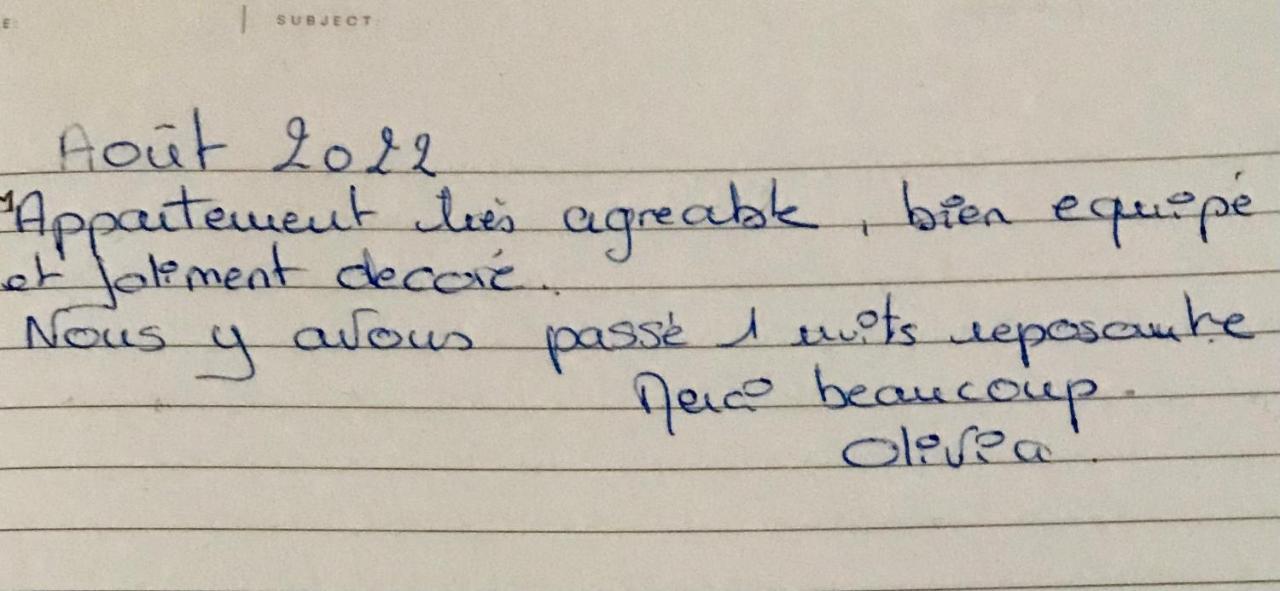 E: SUBJECT:
Août 2022
Appartement très agreable, bien equipé
et joliment decoré.
Nous y avons passé 1 nuits reposante
Merci beaucoup.
Olivia.